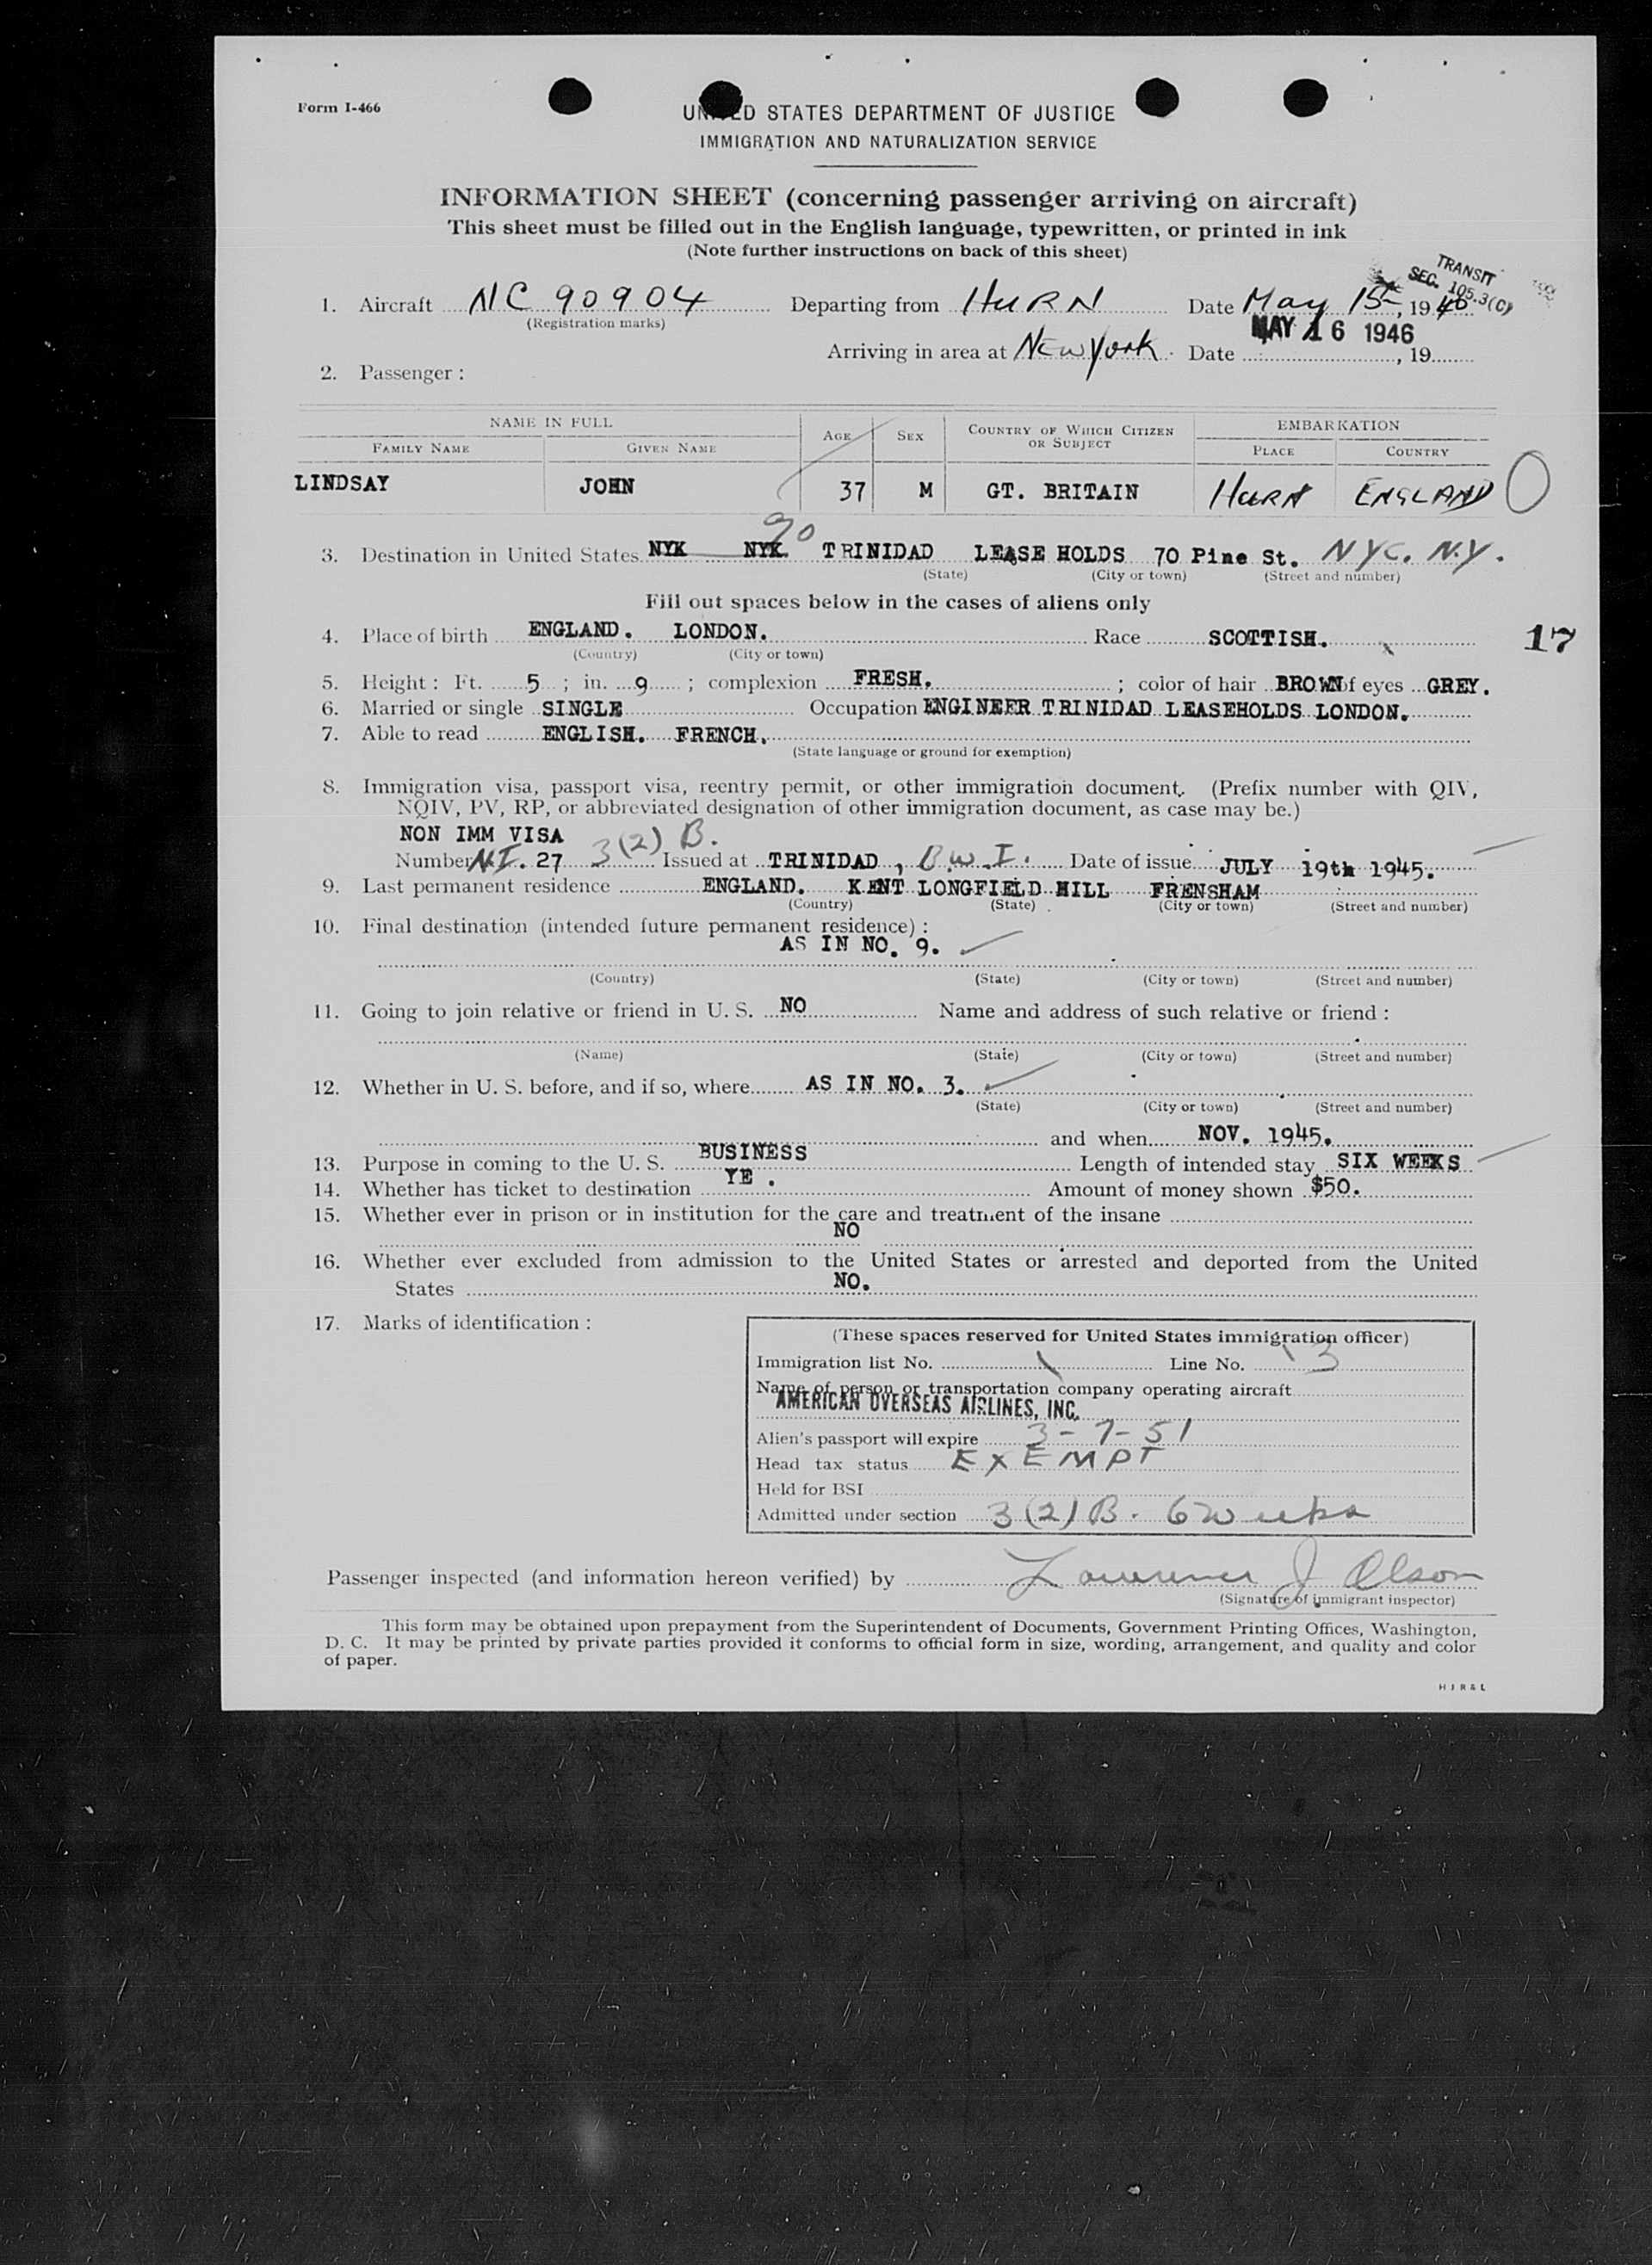 Form I-466
UNITED STATES DEPARTMENT OF JUSTICE
IMMIGRATION AND NATURALIZATION SERVICE
INFORMATION SHEET (concerning passenger arriving on aircraft)
This sheet must be filled out in the English language, typewritten, or printed in ink
(Note further instructions on back of this sheet)
TRANSIT
SEC. 105.3(C)
1. Aircraft NC 90904 Departing from HURN Date May 15, 1946
(Registration marks)
MAY 16 1946
Arriving in area at New York Date , 19
2. Passenger :
NAME IN FULL AGE SEX COUNTRY OF WHICH CITIZEN OR SUBJECT EMBARKATION
FAMILY NAME GIVEN NAME PLACE COUNTRY
LINDSAY JOHN 37 M GT. BRITAIN HURN ENGLAND
3. Destination in United States NYK NYK. TRINIDAD LEASE HOLDS 70 Pine St. NYC. N.Y.
(State) (City or town) (Street and number)
Fill out spaces below in the cases of aliens only
4. Place of birth ENGLAND. LONDON. Race SCOTTISH. 17
(Country) (City or town)
5. Height : Ft. 5 ; in. 9 ; complexion FRESH. ; color of hair BROWN of eyes GREY.
6. Married or single SINGLE Occupation ENGINEER TRINIDAD LEASEHOLDS LONDON.
7. Able to read ENGLISH. FRENCH.
(State language or ground for exemption)
8. Immigration visa, passport visa, reentry permit, or other immigration document. (Prefix number with QIV,
NQIV, PV, RP, or abbreviated designation of other immigration document, as case may be.)
NON IMM VISA
Number N.I. 27 3(2) B. Issued at TRINIDAD, B.W.I. Date of issue JULY 19th 1945.
9. Last permanent residence ENGLAND. KENT LONGFIELD HILL FRENSHAM
(Country) (State) (City or town) (Street and number)
10. Final destination (intended future permanent residence) :
AS IN NO. 9.
(Country) (State) (City or town) (Street and number)
11. Going to join relative or friend in U. S. NO Name and address of such relative or friend :
(Name) (State) (City or town) (Street and number)
12. Whether in U. S. before, and if so, where AS IN NO. 3.
(State) (City or town) (Street and number)
and when NOV. 1945.
13. Purpose in coming to the U. S. BUSINESS Length of intended stay SIX WEEKS
14. Whether has ticket to destination YE . Amount of money shown $50.
15. Whether ever in prison or in institution for the care and treatment of the insane
NO
16. Whether ever excluded from admission to the United States or arrested and deported from the United
States NO.
17. Marks of identification :
(These spaces reserved for United States immigration officer)
Immigration list No. 1 Line No. 3
Name of person or transportation company operating aircraft
AMERICAN OVERSEAS AIRLINES, INC.
Alien's passport will expire 3-7-51
Head tax status EXEMPT
Held for BSI
Admitted under section 3(2) B. 6 weeks
Passenger inspected (and information hereon verified) by Lawrence J. Olson
(Signature of immigrant inspector)
This form may be obtained upon prepayment from the Superintendent of Documents, Government Printing Offices, Washington,
D. C. It may be printed by private parties provided it conforms to official form in size, wording, arrangement, and quality and color
of paper.
H J R & L